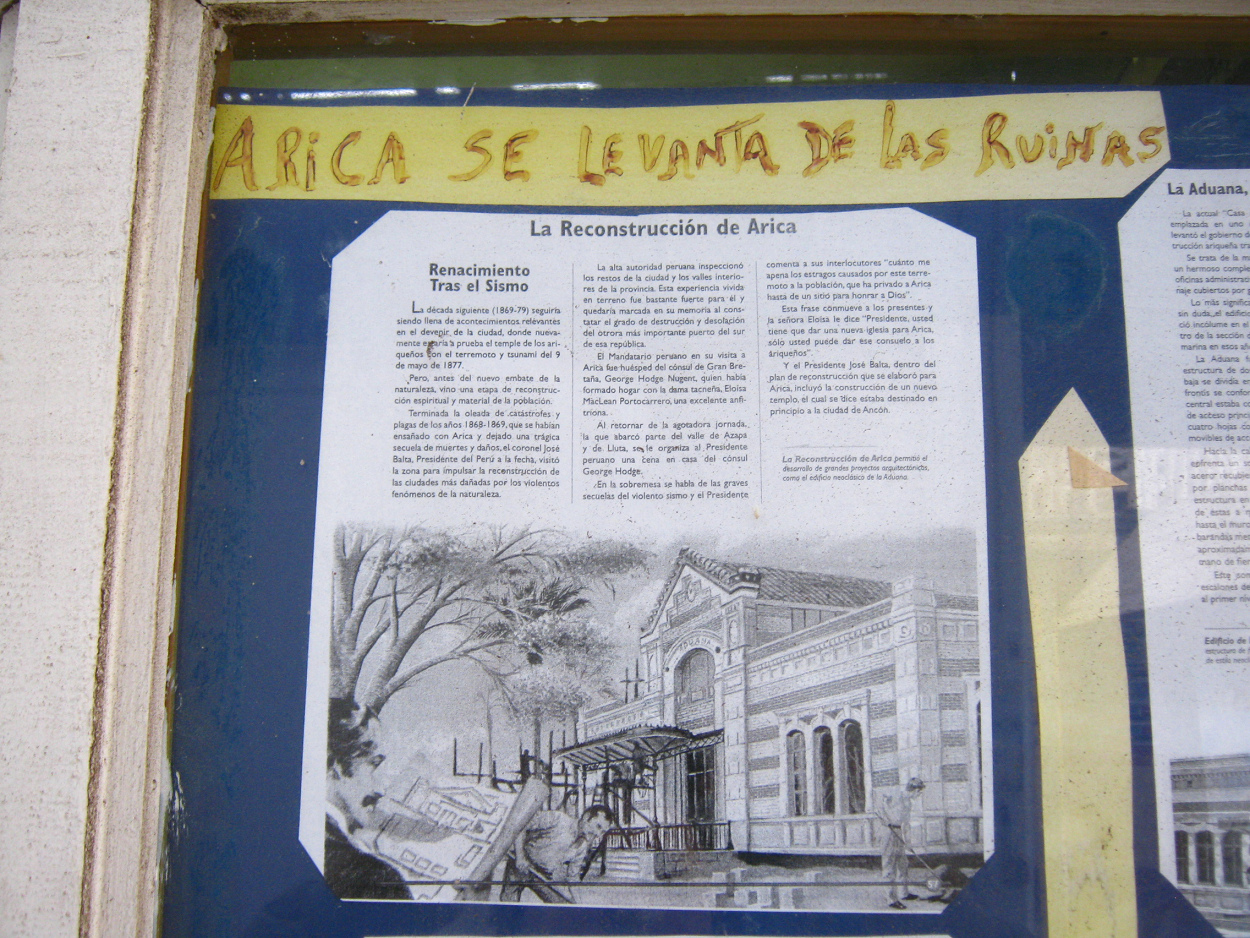 ARiCA SE LEVANTA DE LAS RUiNAS
La Reconstrucción de Arica
Renacimiento
Tras el Sismo
La década siguiente (1869-79) seguiría
siendo llena de acontecimientos relevantes
en el devenir de la ciudad, donde nueva-
mente estaría a prueba el temple de los ari-
queños con el terremoto y tsunami del 9
de mayo de 1877.
Pero, antes del nuevo embate de la
naturaleza, vino una etapa de reconstruc-
ción espiritual y material de la población.
Terminada la oleada de catástrofes y
plagas de los años 1868-1869, que se habían
ensañado con Arica y dejado una trágica
secuela de muertes y daños, el coronel José
Balta, Presidente del Perú a la fecha, visitó
la zona para impulsar la reconstrucción de
las ciudades más dañadas por los violentos
fenómenos de la naturaleza.
La alta autoridad peruana inspeccionó
los restos de la ciudad y los valles interio-
res de la provincia. Esta experiencia vivida
en terreno fue bastante fuerte para él y
quedaría marcada en su memoria al cons-
tatar el grado de destrucción y desolación
del otrora más importante puerto del sur
de esa república.
El Mandatario peruano en su visita a
Arica fue huésped del cónsul de Gran Bre-
taña, George Hodge Nugent, quien había
formado hogar con la dama tacneña, Eloísa
MacLean Portocarrero, una excelente anfi-
triona.
Al retornar de la agotadora jornada,
la que abarcó parte del valle de Azapa
y de Lluta, se le organiza al Presidente
peruano una cena en casa del cónsul
George Hodge.
En la sobremesa se habla de las graves
secuelas del violento sismo y el Presidente
comenta a sus interlocutores "cuánto me
apena los estragos causados por este terre-
moto a la población, que ha privado a Arica
hasta de un sitio para honrar a Dios".
Esta frase conmueve a los presentes y
la señora Eloísa le dice "Presidente, usted
tiene que dar una nueva iglesia para Arica,
sólo usted puede dar ese consuelo a los
ariqueños".
Y el Presidente José Balta, dentro del
plan de reconstrucción que se elaboró para
Arica, incluyó la construcción de un nuevo
templo, el cual se dice estaba destinado en
principio a la ciudad de Ancón.
La Reconstrucción de Arica permitió el
desarrollo de grandes proyectos arquitectónicos,
como el edificio neoclásico de la Aduana.
ADUANA
La Aduana,
La actual "Casa
emplazada en uno
levantó el gobierno
trucción ariqueña
Se trata de la
un hermoso
oficinas
naje cubiertos por
Lo más
sin duda, el edificio
ció incólume en el
tro de la sección
marina en esos
La Aduana
estructura de
baja se dividía
frontis se
central estaba
de acceso
cuatro hojas
movibles de
Hacia la
enfrenta un
acero
por planchas
estructura en
de éstas a
hasta el muro
mano de
escalones de
al primer
Edificio de